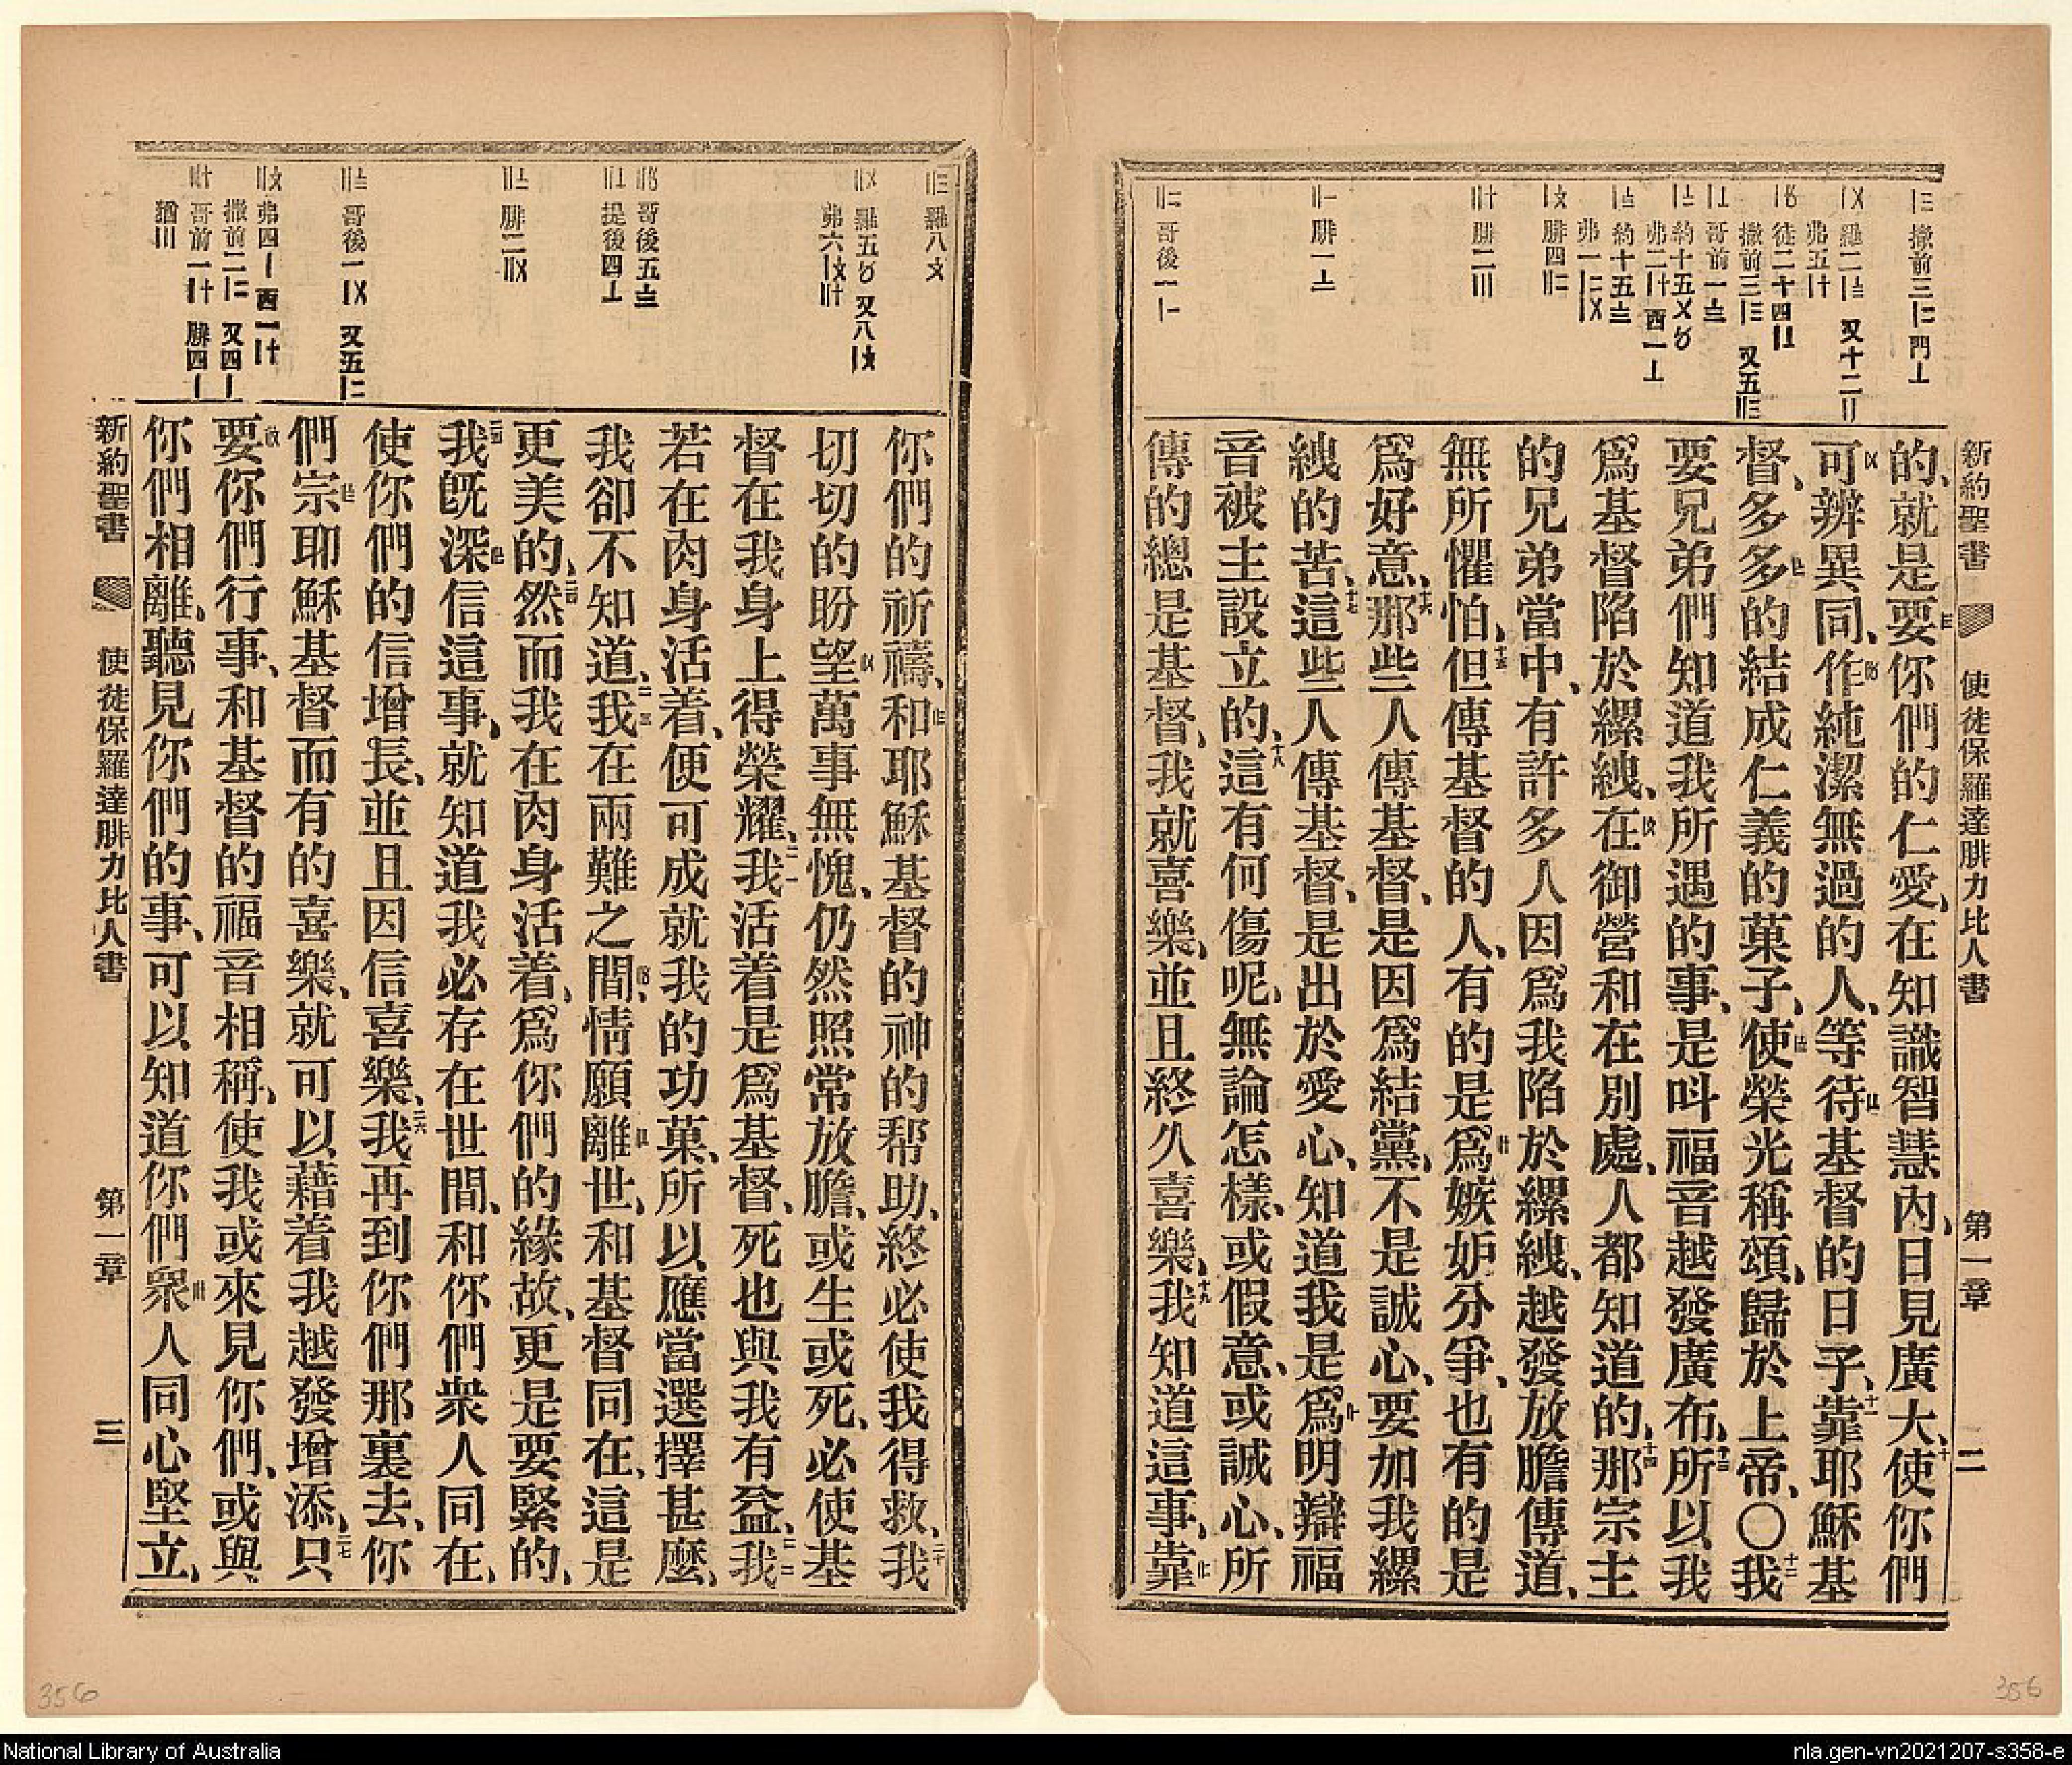 新約聖書 使徒保羅達腓力比人書 第一章 二
的、就是要你們的仁愛、在知識智慧內、日見廣大、十使你們
可辨異同、作純潔無過的人、等待基督的日子、十一靠耶穌基
督、多多的結成仁義的菓子、使榮光稱頌、歸於上帝、〇十二我
要兄弟們知道我所遇的事、是呌福音越發廣布、十三所以我
爲基督陷於縲絏、在御營和在別處、人都知道的、十四那宗主
的兄弟當中、有許多人因爲我陷於縲絏、越發放膽傳道、
無所懼怕、十五但傳基督的人、有的是爲嫉妒分爭、也有的是
爲好意、十六那些人傳基督、是因爲結黨、不是誠心、要加我縲
絏的苦、十七這些人傳基督、是出於愛心、知道我是爲明辯福
音被主設立的、十八這有何傷呢、無論怎樣、或假意、或誠心、所
傳的總是基督、我就喜樂、並且終久喜樂、十九我知道這事、靠
你們的祈禱、和耶穌基督的神的帮助、終必使我得救、二十我
切切的盼望萬事無愧、仍然照常放膽、或生或死、必使基
督在我身上得榮耀、二一我活着是爲基督、死也與我有益、二二我
若在肉身活着、便可成就我的功菓、所以應當選擇甚麼、
我卻不知道、二三我在兩難之間、情願離世、和基督同在、這是
更美的、二四然而我在肉身活着、爲你們的緣故、更是要緊的、
二五我旣深信這事、就知道我必存在世間、和你們衆人同在、
使你們的信增長、並且因信喜樂、二六我再到你們那裏去、你
們宗耶穌基督而有的喜樂、就可以藉着我越發增添、二七只
要你們行事、和基督的福音相稱、使我或來見你們、或與
你們相離、聽見你們的事、可以知道你們衆人同心堅立、
新約聖書 使徒保羅達腓力比人書 第一章 三
356
356
National Library of Australia
nla.gen-vn2021207-s358-e